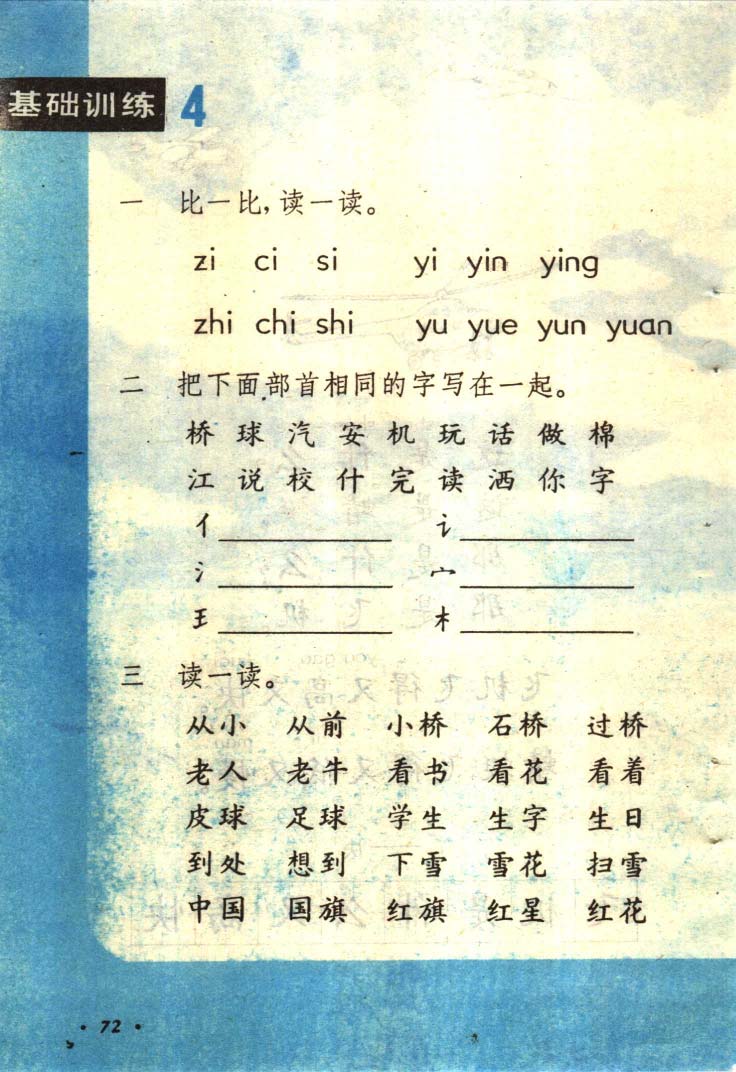 基础训练 4
一 比一比，读一读。
zi ci si yi yin ying
zhi chi shi yu yue yun yuan
二 把下面部首相同的字写在一起。
桥 球 汽 安 机 玩 话 做 棉
江 说 校 什 完 读 洒 你 字
亻 讠
氵 宀
王 木
三 读一读。
从小 从前 小桥 石桥 过桥
老人 老牛 看书 看花 看着
皮球 足球 学生 生字 生日
到处 想到 下雪 雪花 扫雪
中国 国旗 红旗 红星 红花
· 72 ·